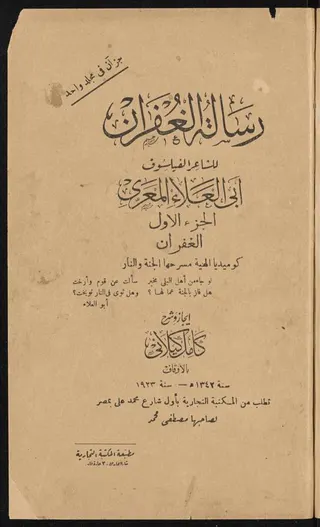 جزآن في مجلد واحد
رسالة الغفران
للشاعر الفيلسوف
أبي العلاء المعري
الجزء الأول
الغفران
كوميديا الهية مسرحها الجنة والنار
لو جاء من أهل البلى مخبر سألت عن قوم وأرخت
هل فاز بالجنة عمالها ؟ وهل ثوى في النار نوبخت ؟
أبو العلاء
إيجاز وشرح
كامل كيلاني
بالأوقاف
سنة ١٣٤٢ هـ — سنة ١٩٢٣
تطلب من المكتبة التجارية بأول شارع محمد علي بمصر
لصاحبها مصطفى محمد
مطبعة المكتبة التجارية